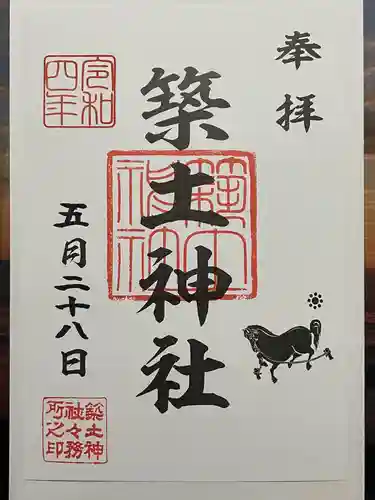 奉拝
築土神社
令和四年
五月二十八日
築土神社々務所之印